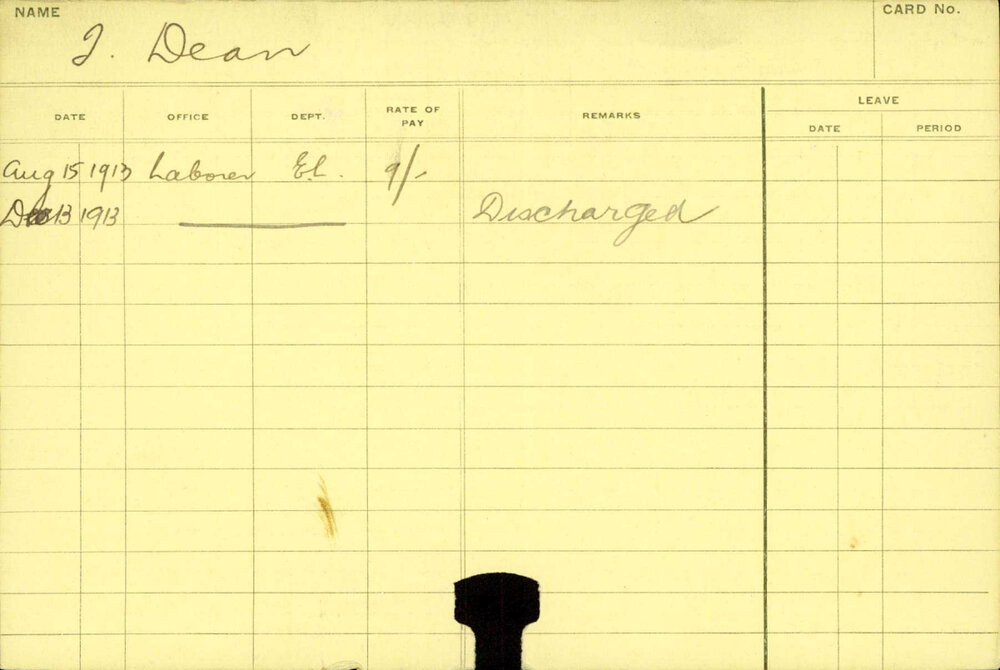 NAME
CARD No.
J. Dean
DATE OFFICE DEPT. RATE OF PAY REMARKS LEAVE
DATE PERIOD
Aug 15 1913 Laborer El. 9/-
13 1913 Discharged